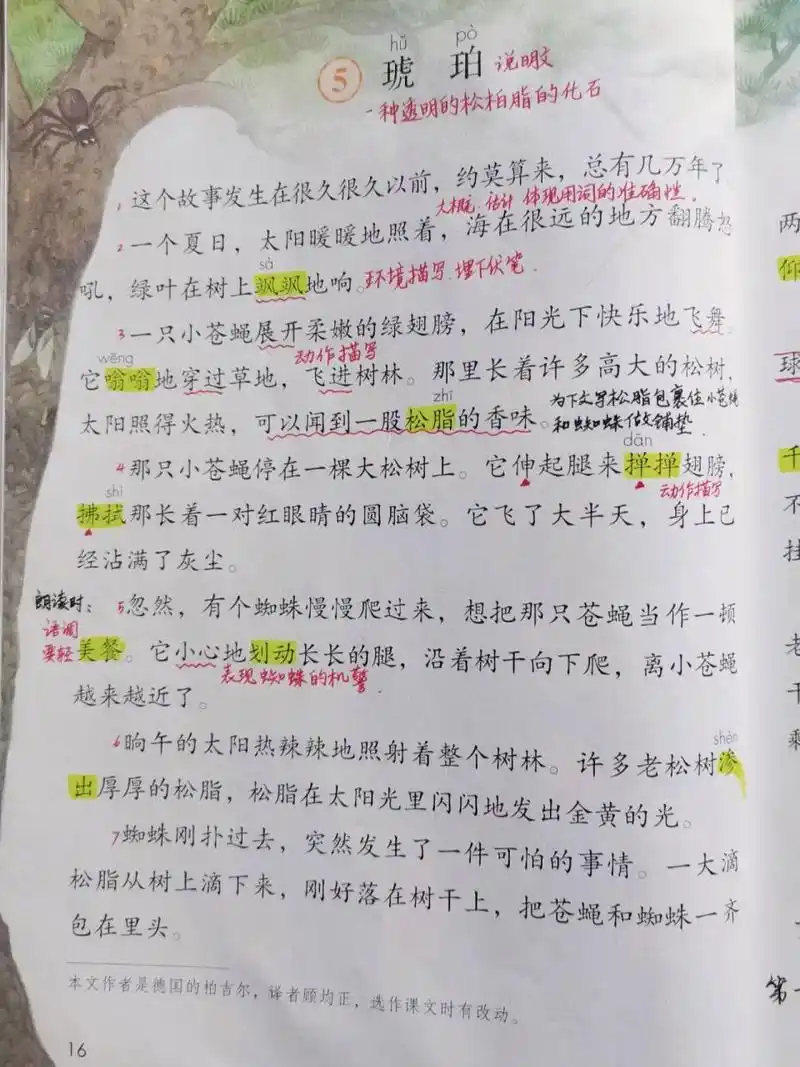 hǔ pò
5 琥珀 说明文
一种透明的松柏脂的化石
1 这个故事发生在很久很久以前，约莫算来，总有几万年了
大概 估计 体现用词的准确性。
2 一个夏日，太阳暖暖地照着，海在很远的地方翻腾怒
sà
吼，绿叶在树上飒飒地响。环境描写 埋下伏笔
3 一只小苍蝇展开柔嫩的绿翅膀，在阳光下快乐地飞舞。
wēng 动作描写
它嗡嗡地穿过草地，飞进树林。那里长着许多高大的松树，
zhī 为下文写松脂包裹住小苍蝇
太阳照得火热，可以闻到一股松脂的香味。和蜘蛛做铺垫.
dǎn
4 那只小苍蝇停在一棵大松树上。它伸起腿来掸掸翅膀，
shì 动作描写
拂拭那长着一对红眼睛的圆脑袋。它飞了大半天，身上已
经沾满了灰尘。
朗读时： 5 忽然，有个蜘蛛慢慢爬过来，想把那只苍蝇当作一顿
语调
要轻 美餐。它小心地划动长长的腿，沿着树干向下爬，离小苍蝇
表现蜘蛛的机警.
越来越近了。
6 晌午的太阳热辣辣地照射着整个树林。许多老松树渗
shèn
出厚厚的松脂，松脂在太阳光里闪闪地发出金黄的光。
7 蜘蛛刚扑过去，突然发生了一件可怕的事情。一大滴
松脂从树上滴下来，刚好落在树干上，把苍蝇和蜘蛛一齐
包在里头。
本文作者是德国的柏吉尔，译者顾均正，选作课文时有改动。
16
两
仰
球
千
不
挂
老
干
剩
第一